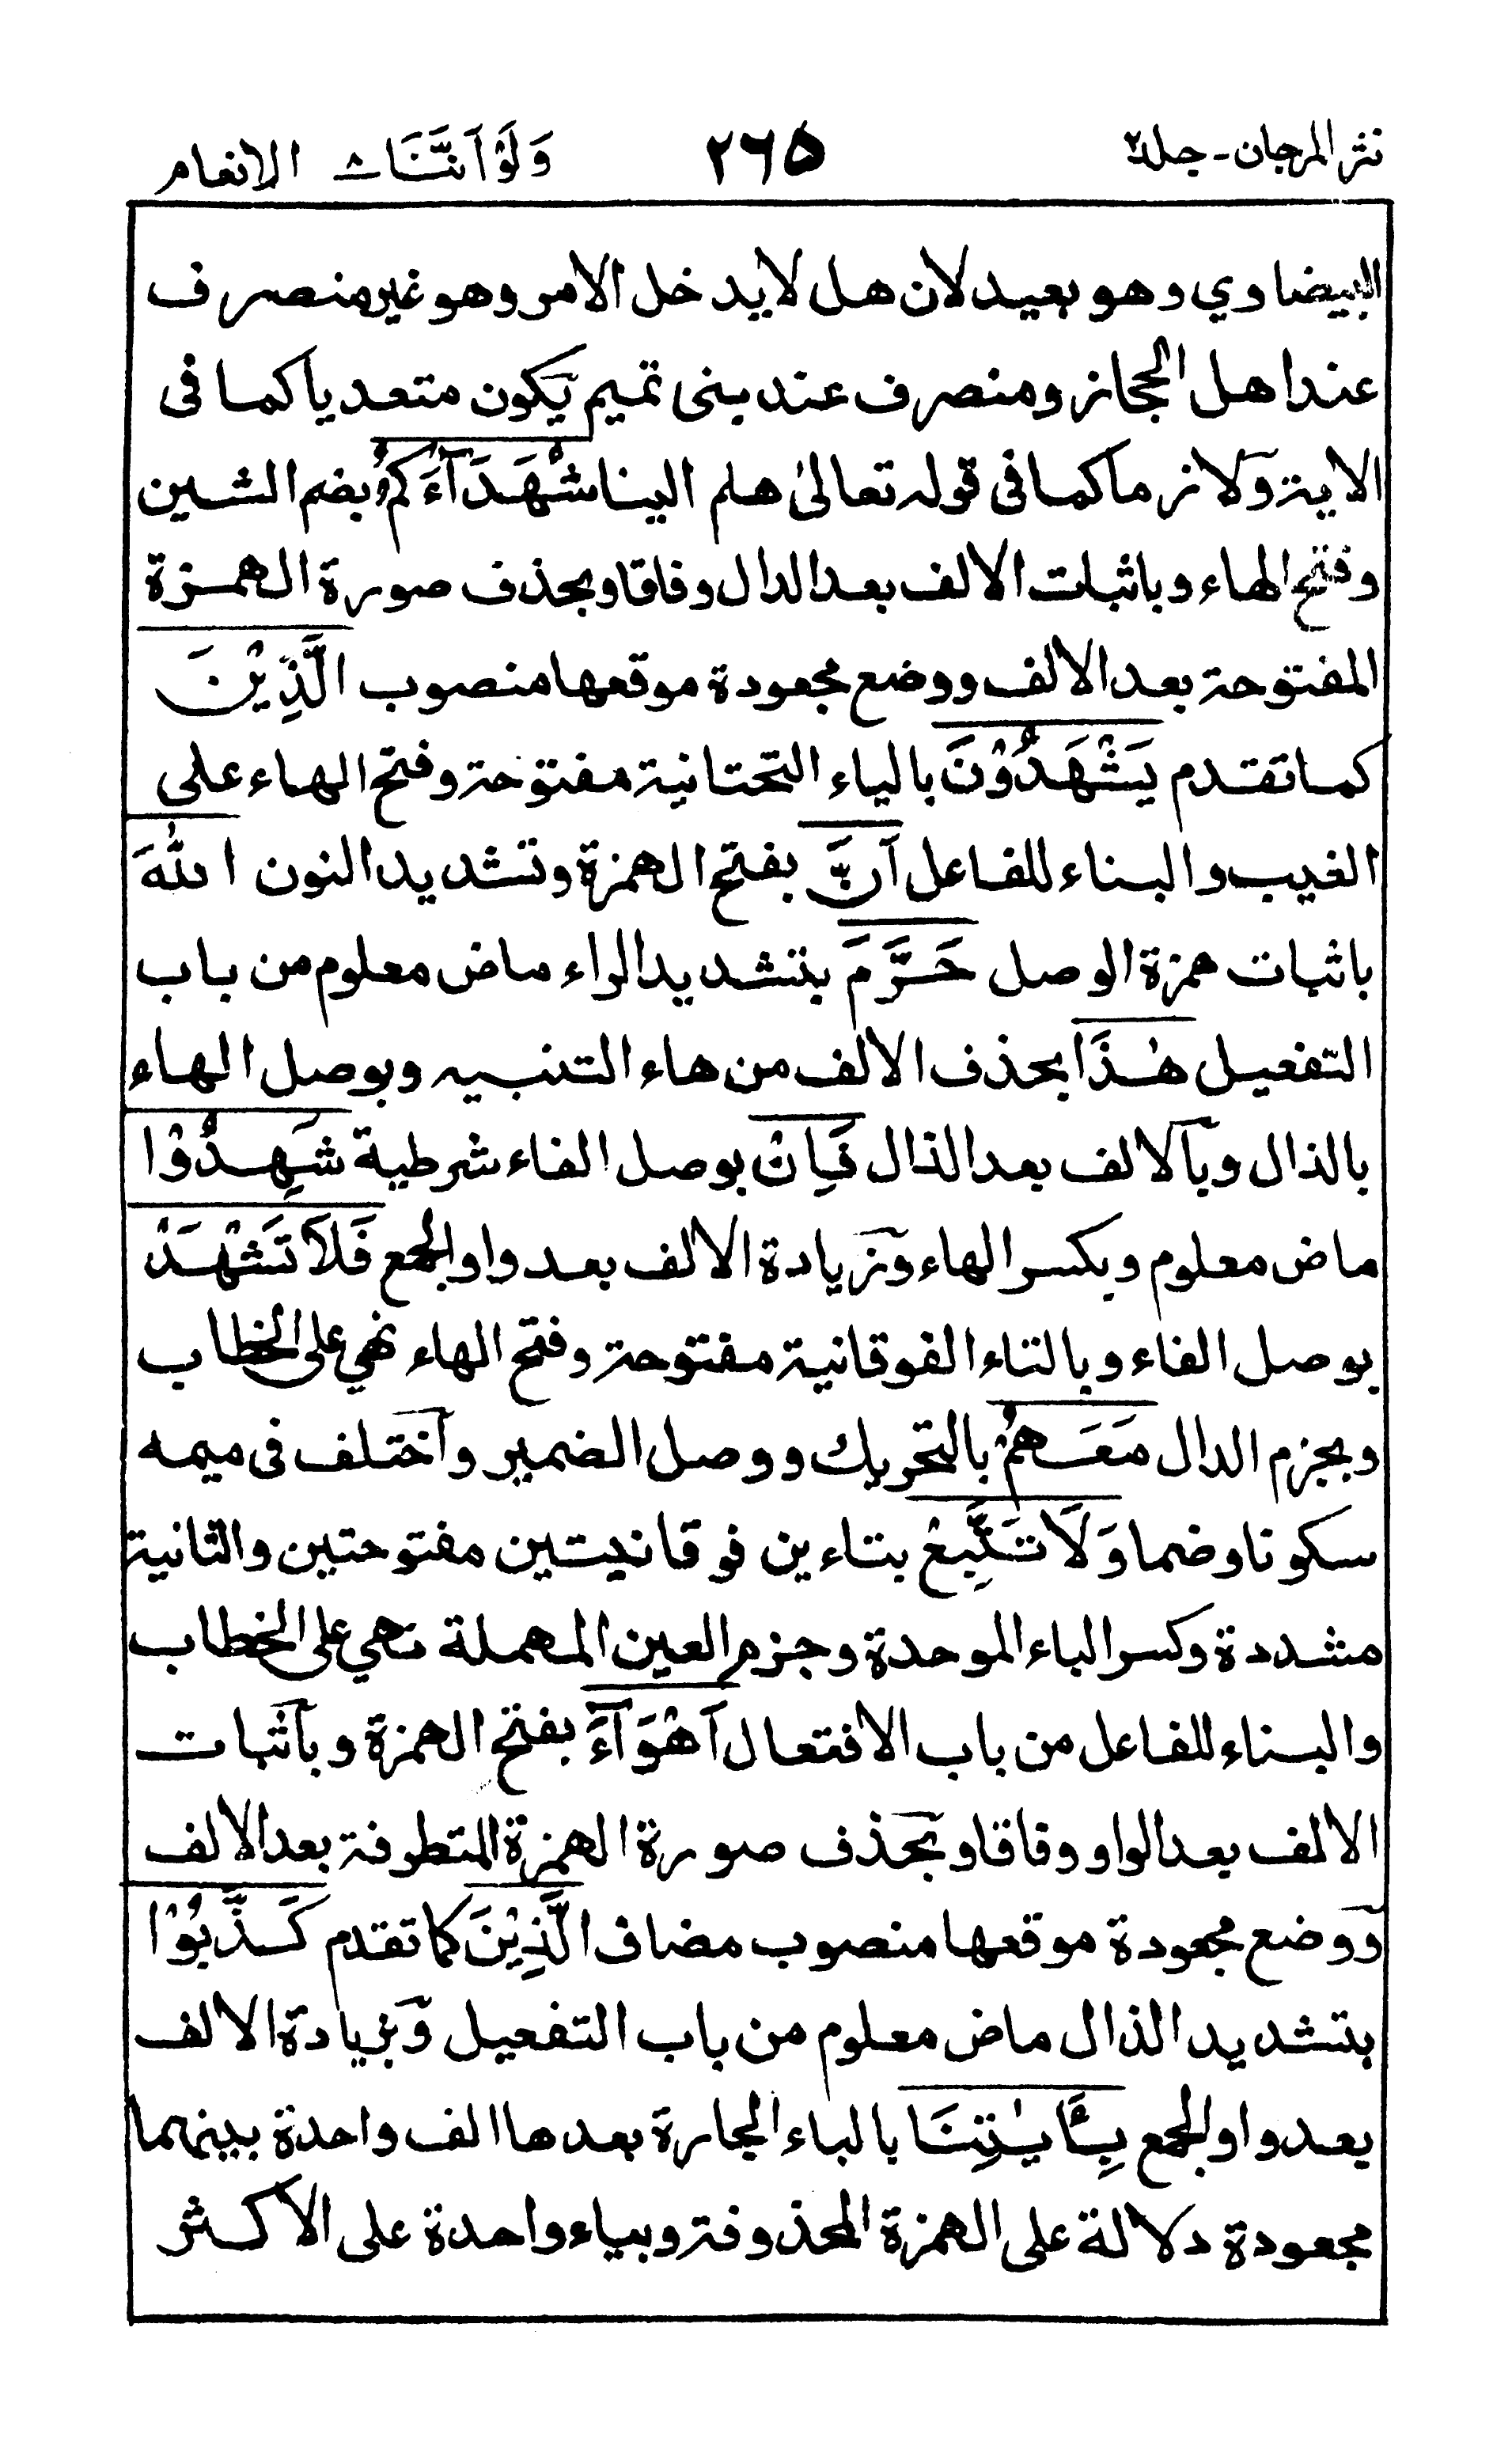 نثر المرجان - جلد۲ ۲۶۵ وَلَوْ اَنَّنَا ۸ الانعام
البيضاوي وهو بعيد لان هل لا يدخل الامر وهو غير منصرف
عند اهل الحجاز ومنصرف عند بنى تميم يكون متعديا كما فى
الاية ولازما كما فى قوله تعالىٰ هلم الينا شُهَدَآءَكُمُ بضم الشين
وفتح الهاء وباثبات الالف بعد الدال وفاقا وبحذف صورة الهمزة
المفتوحة بعد الالف ووضع مجعودة موقعها منصوب الَّذِيْنَ
كما تقدم يَشْهَدُوْنَ بالياء التحتانية مفتوحة وفتح الهاء على
الغيب والبناء للفاعل اَنَّ بفتح الهمزة وتشديد النون اللهَ
باثبات همزة الوصل حَرَّمَ بتشديد الراء ماض معلوم من باب
التفعيل هٰذَا بحذف الالف من هاء التنبيه وبوصل الهاء
بالذال وبالالف بعد الذال فَاِنْ بوصل الفاء شرطية شَهِدُوْا
ماض معلوم وبكسر الهاء وبزيادة الالف بعد واو الجمع فَلَا تَشْهَدْ
بوصل الفاء وبالتاء الفوقانية مفتوحة وفتح الهاء نهي على الخطاب
وبجزم الدال مَعَهُمْ بالتحريك ووصل الضمير واختلف فى ميمه
سكونا وضما وَلَا تَتَّبِعْ بتاءين فوقانيتين مفتوحتين والثانية
مشددة وكسر الباء الموحدة وجزم العين المهملة نهي على الخطاب
والبناء للفاعل من باب الافتعال اَهْوَآءَ بفتح الهمزة وباثبات
الالف بعد الواو وفاقا وبحذف صورة الهمزة المتطرفة بعد الالف
ووضع مجعودة موقعها منصوب مضاف الَّذِيْنَ كما تقدم كَذَّبُوْا
بتشديد الذال ماض معلوم من باب التفعيل وبزيادة الالف
بعد واو الجمع بِئَايٰتِنَا بالباء الجارة بعدها الف واحدة بينهما
مجعودة دلالة على الهمزة المحذوفة وبياء واحدة على الاكثر